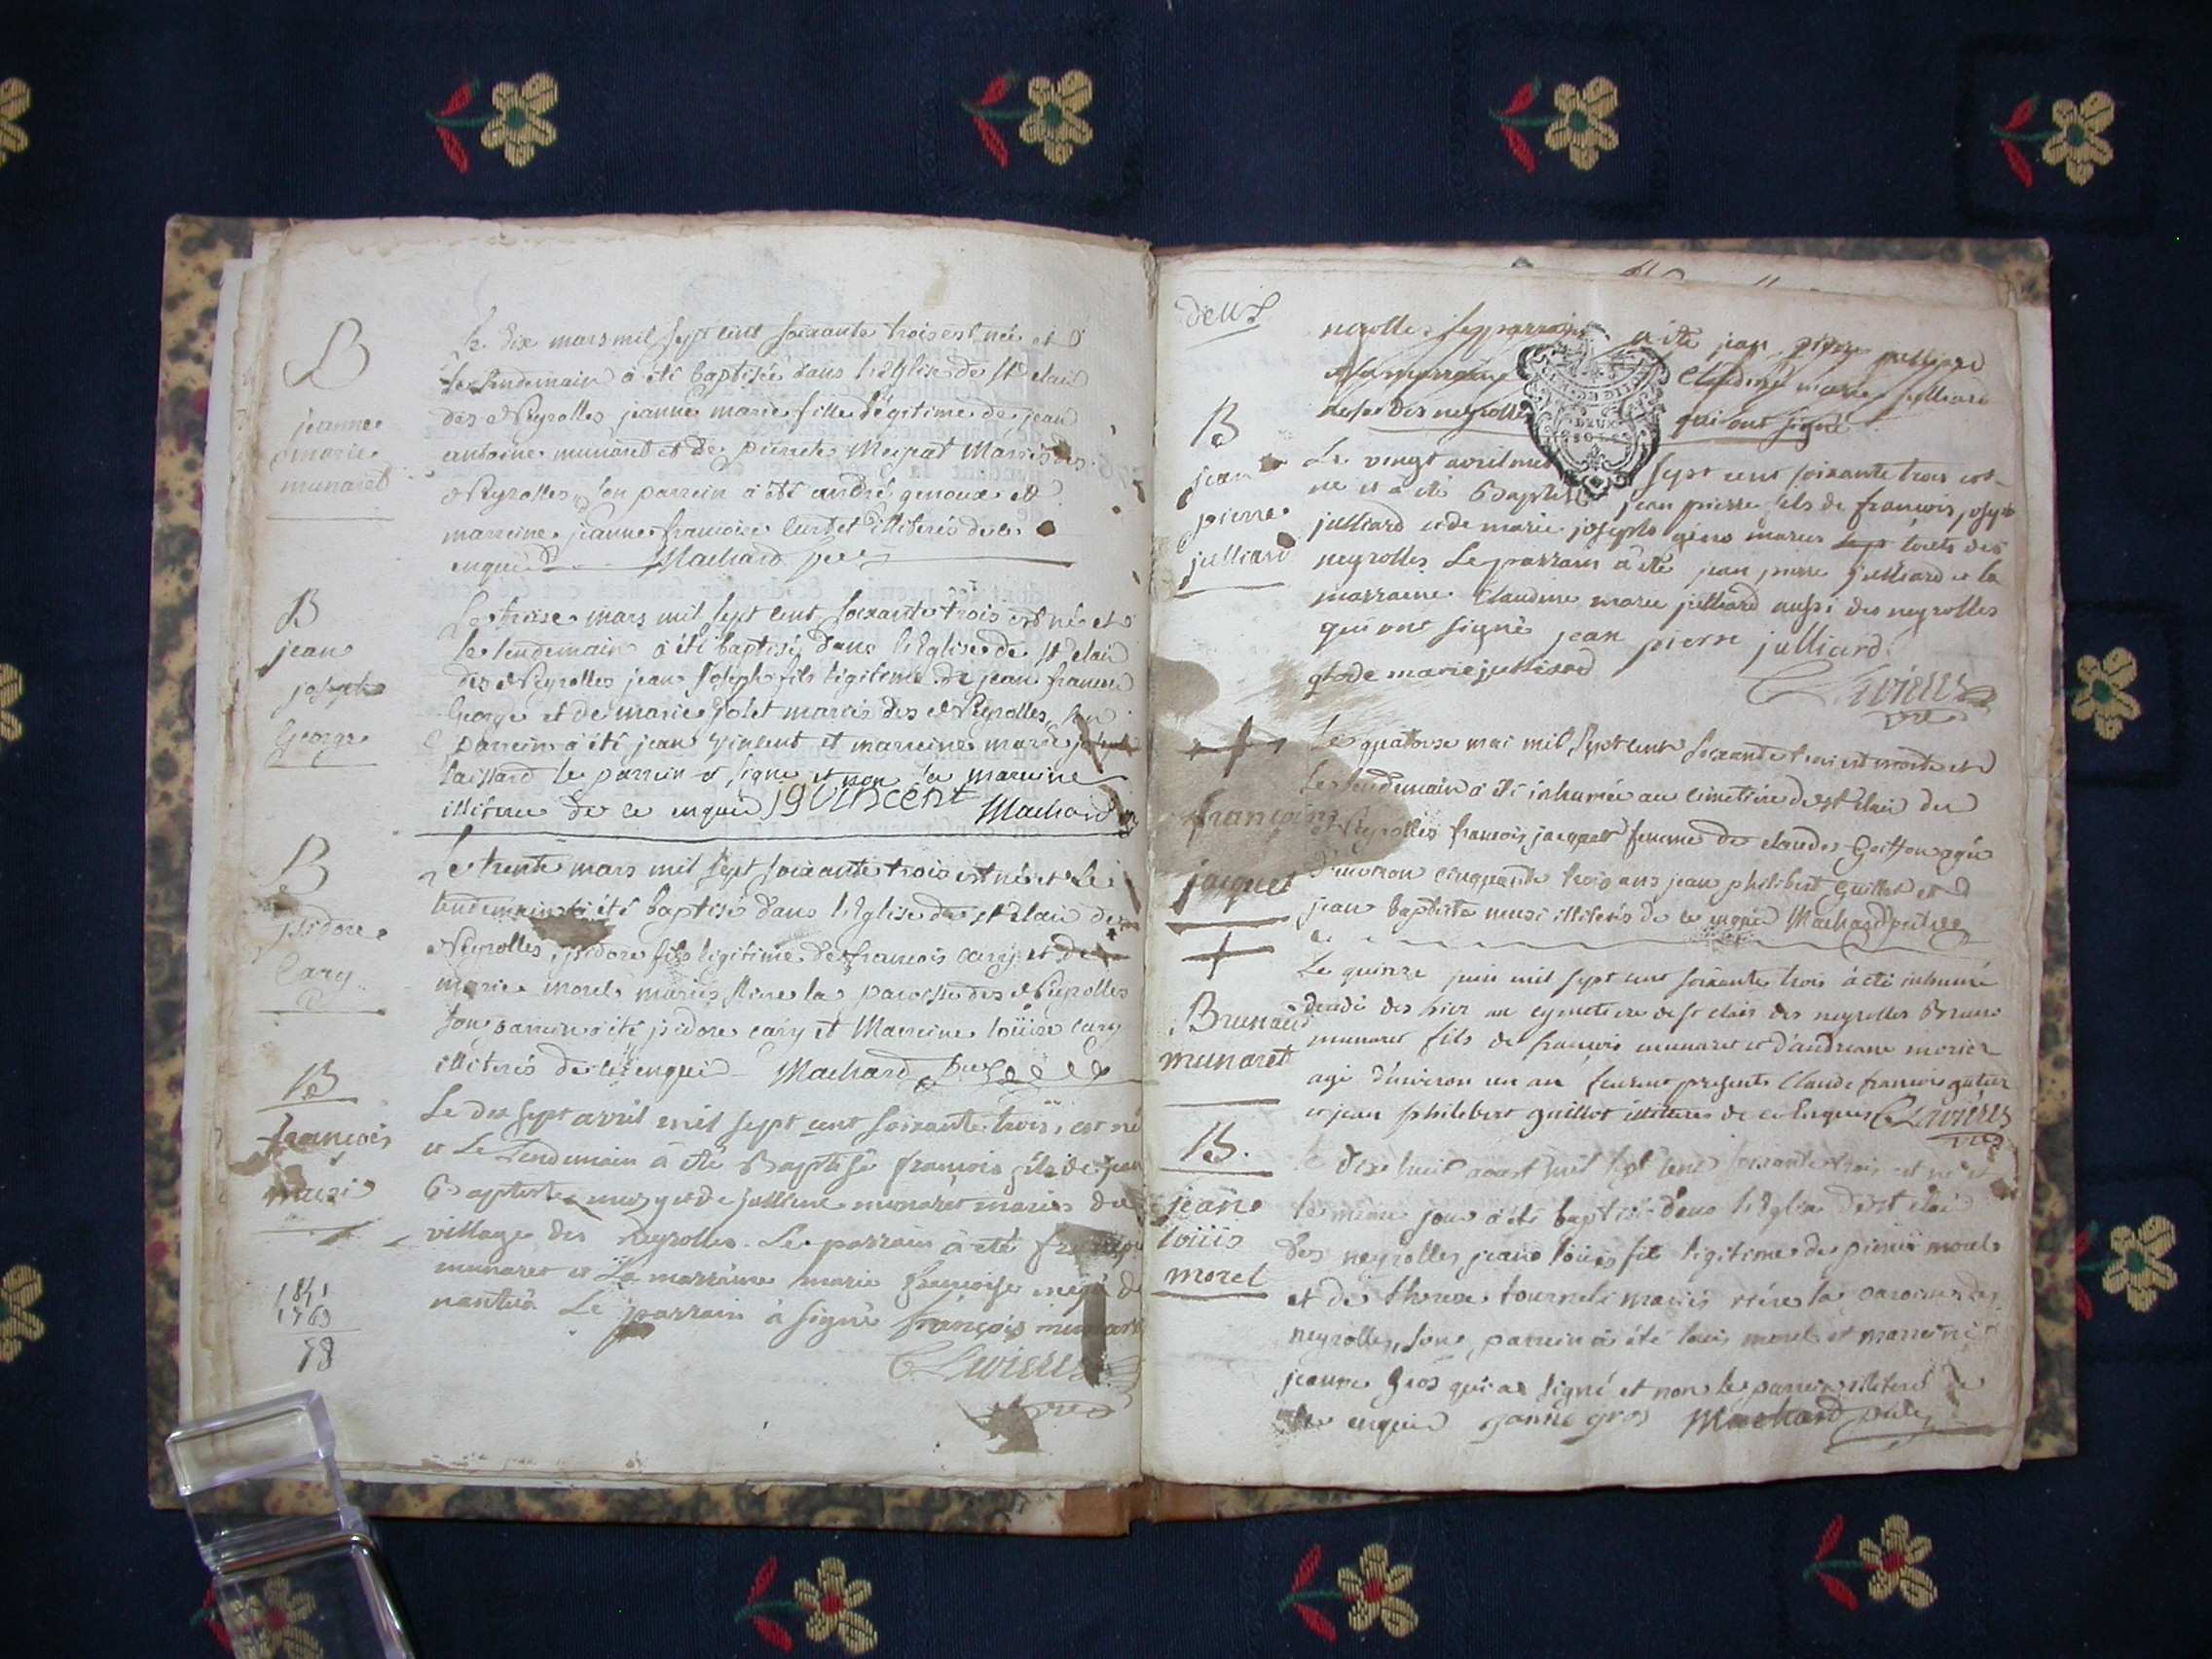 B
jeanne
marie
munaret
le dix mars mil sept cent soixante trois est née et
le lendemain a été baptisée dans l'Eglise de st clair
des Neyrolles jeanne marie fille légitime de jean
antoine munaret et de pierrete Mariés des
Neyrolles, son parrein a été andré genoux et
marreine jeanne francoise illiterés de ce
enquis Machard
B
jean
joseph
George
Le treise mars mil sept cent soixante trois est né et
le lendemain a été baptisé dans l'Eglise de st clair
des Neyrolles jean Joseph fils légitime de jean francois
George et de marie jolet mariés des Neyrolles, son
parrein a été jean vincent et marreine marie joseph
taillard le parrein a signé et non la marreine
illiterée de ce enquis jg vincent Machard
B
isidore
Cary
Le trente mars mil sept soixante trois est né et le
lendemain a été baptisé dans l'Eglise de st clair des
Neyrolles, isidore fils légitime de francois cary et de
marie morel mariés rière la paroisse des Neyrolles
son parrein a été isidore cary et Marreine loüise cary
illiterés de ce enquis Machard
B
francois
musi
Le dix sept avril mil sept cent soixante trois, est né
et Le Lendemain à été Baptisé françois fils de jean
Baptiste musy et de jullienne munaret mariés du
village des neyrolles. Le parrain à eté françois
munaret et La marraine marie françoise de
nantua Le parrain à signé françois munaret
1841
1763
78
deux
neyrolles le parrain a été jean pierre julliard
et la marraine Claudine marie julliard
des neyrolles qui ont signé
DEUX
SOLS
B
jean
pierre
julliard
Le vingt avril mil sept cent soixante trois est
né et a été Baptisé jean pierre fils de francois joseph
julliard et de marie josephe mariés touts des
neyrolles Le parrain à été jean pierre julliard et la
marraine Claudine marie julliard aussi des neyrolles
qui ont signé jean pierre julliard
marie julliard
françoise
jacquet
Le quatorse mai mil sept cent soixante trois est morte et
le lendemain a été inhumée au cimetière de st clair des
Neyrolles francois jacquet femme de claude Goiffon agée
d'environ cinquante trois ans jean philibert Guillot et
jean baptiste musi illiterés de ce enquis Machard
Brunau
munaret
Le quinze juin mil sept cent soixante trois à été inhumé
des hier au cymetiere de st clair des neyrolles Bruno
munaret fils de francois munaret et d'andreane
agé d'environ un an furent presents Claude francois
et jean philibert guillot illiteres de ce Enquis
B.
jean
loüis
morel
le dix huit aoust mil sept cent soixante trois est né et
le meme jour a été baptisé dans l'Eglise de st clair
des neyrolles jean loüis fils légitime de pierre morel
et de therese tournel mariés rière la paroisse des
neyrolles, son parrein a été louis morel et marreine
jeanne Gros qui a signé et non le parrein illiteré de
ce enquis janne gros Machard